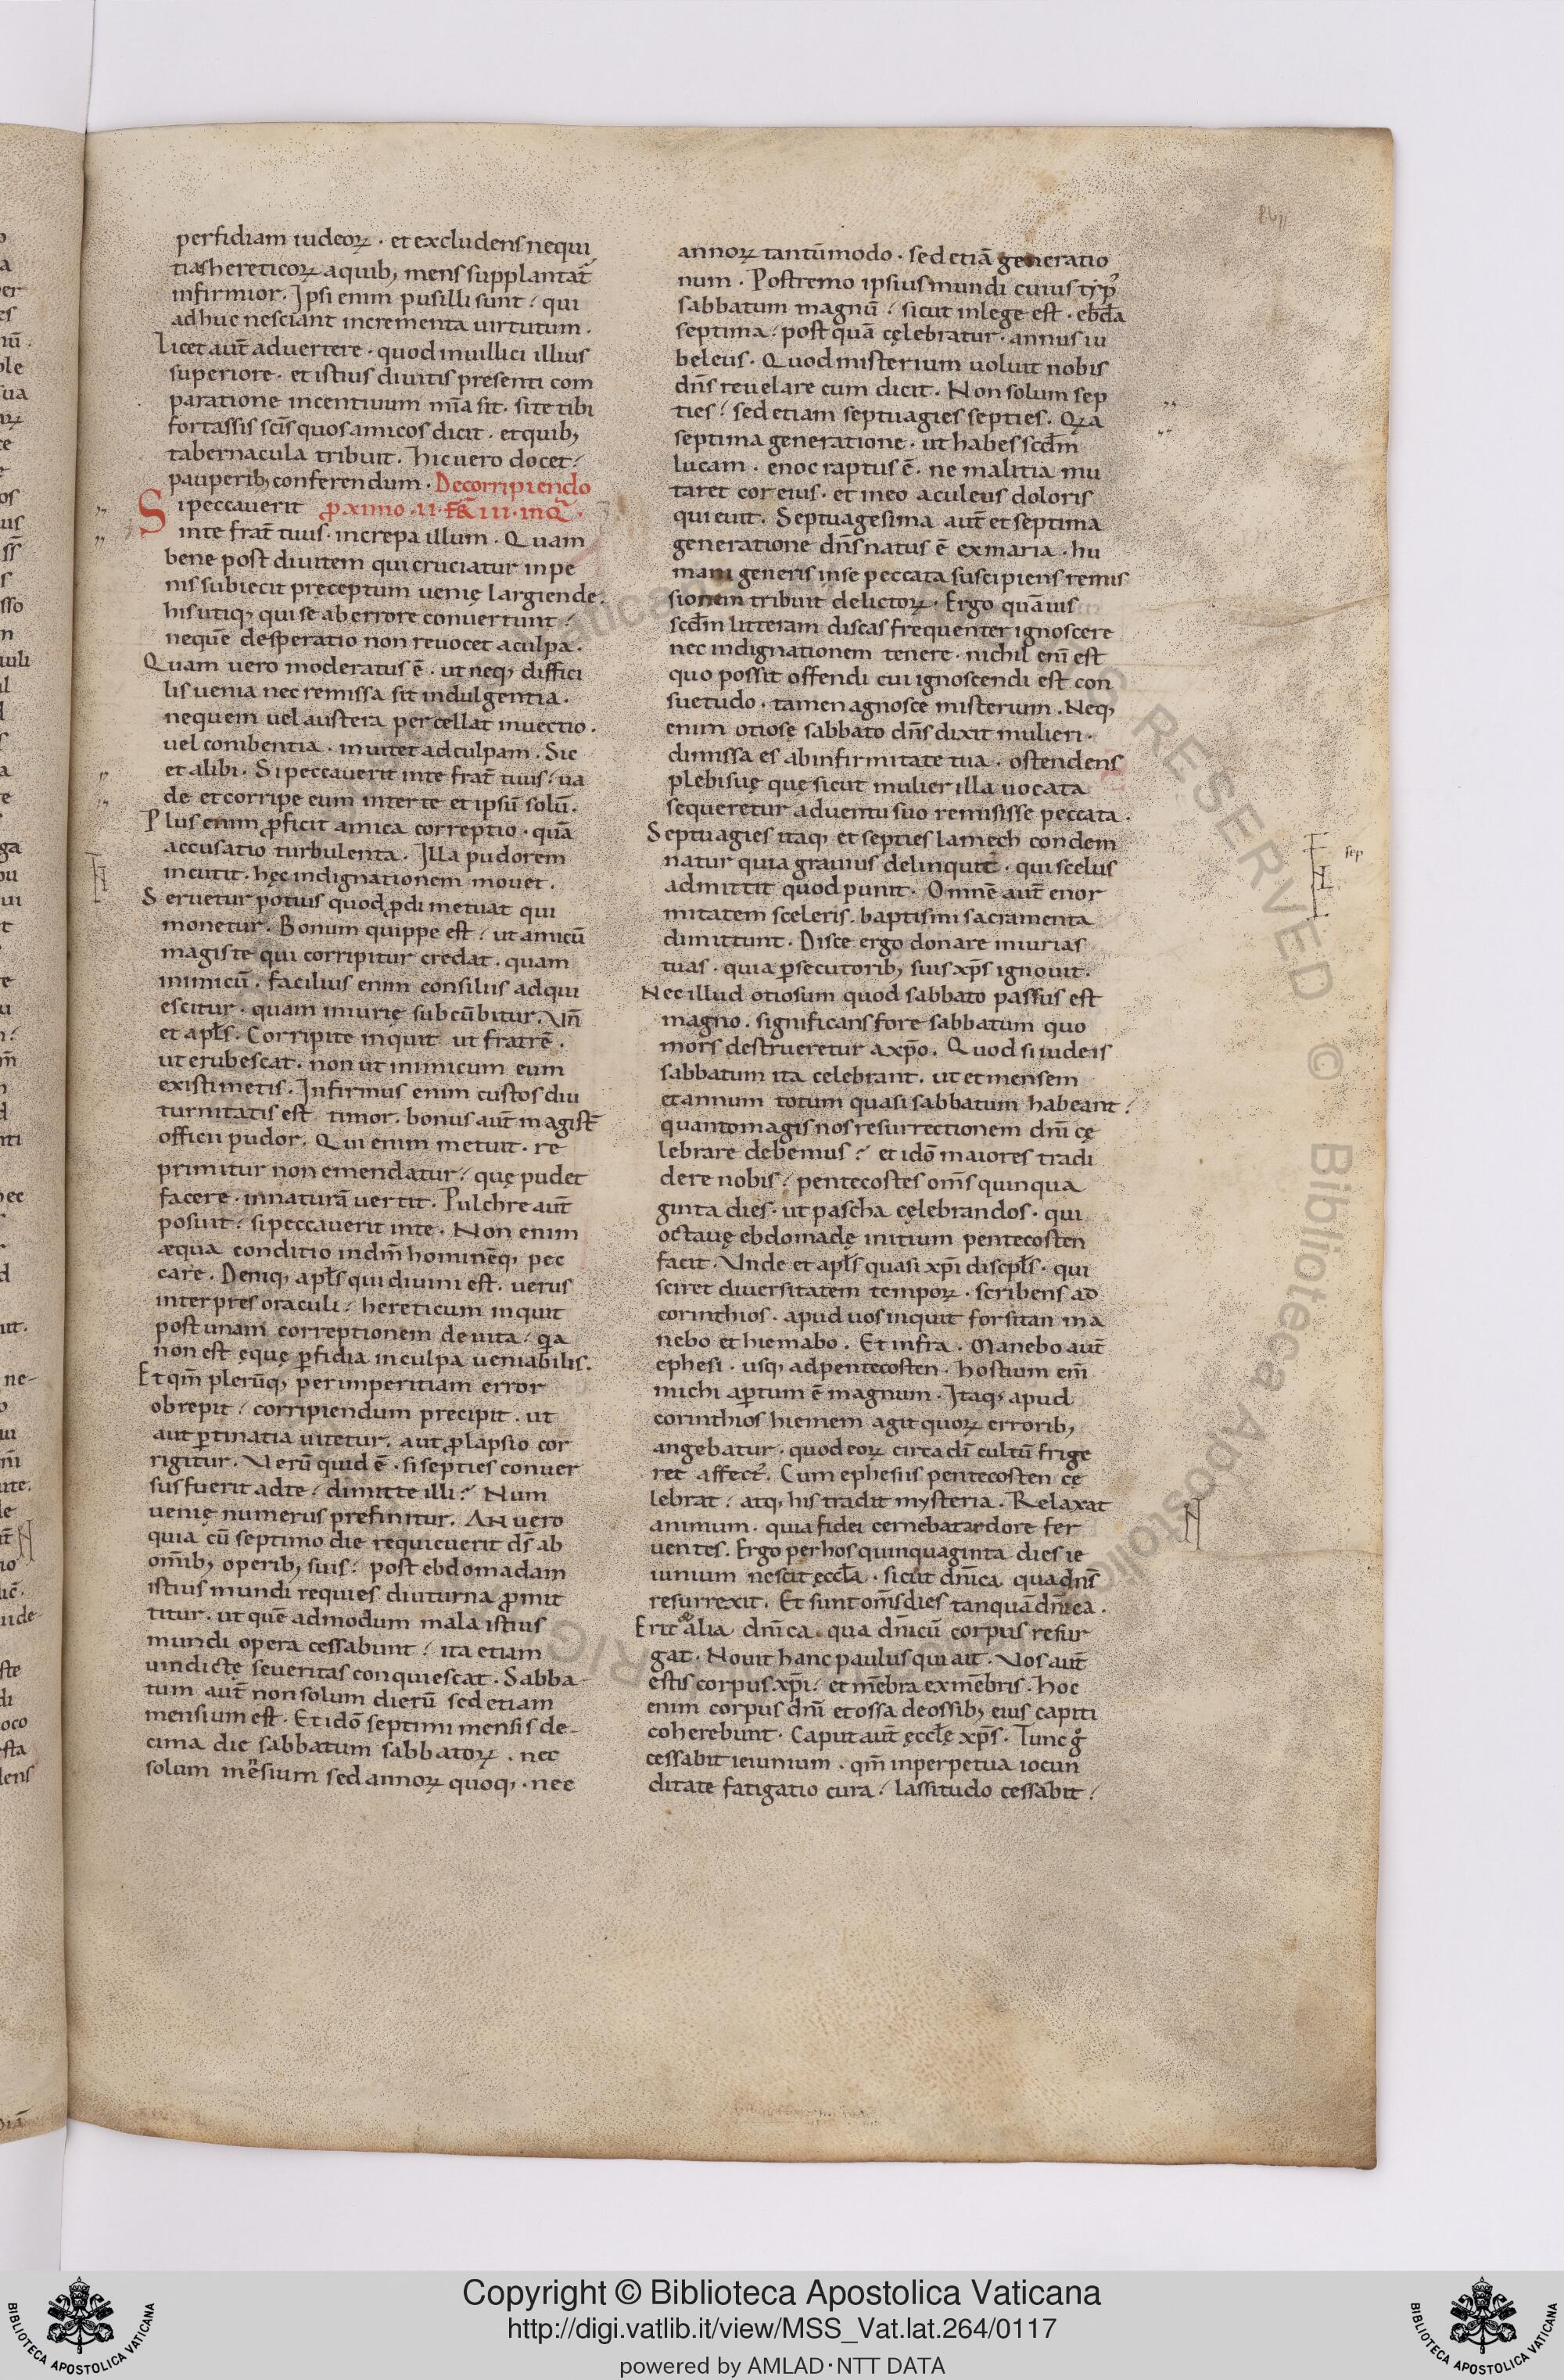 lvii
perfidiam iudeoꝝ · et excludens nequi
tias hereticoꝝ a quib; mens supplantat̄
infirmior. Ipsi enim pusilli sunt? qui
adhuc nesciant incrementa uirtutum.
Licet aut̄ aduertere · quod inuillici illius
superiore · et istius diuitis presenti com
paratione incentiuum mīa sit. siue tibi
fortassis scīs quos amicos dicit · et quib;
tabernacula tribuit. hic uero docet?
pauperib; conferendum. De corripiendo
Si peccauerit ꝓximo · II · fr̄a III · in Q̄ ·
in te frat̄ tuus · increpa illum. Quam
bene post diuitem qui cruciatur in pe
nis subiecit preceptum uenię largiende.
his utiq; qui se ab errore conuertunt?
nequē desperatio non reuocet a culpa.
Quam uero moderatus ē · ut neq; diffici
lis uenia nec remissa sit indulgentia.
nequem uel austera percellat inuectio.
uel conibentia · inuitet ad culpam. Sic
et alibi. Si peccauerit in te frat̄ tuus? ua
de et corripe eum inter te et ipsū solū.
Plus enim ꝓficit amica correptio · quā
accusatio turbulenta. Illa pudorem
incutit · hęc indignationem mouet.
Seruetur potius quod ꝓdi metuat qui
monetur. Bonum quippe est? ut amicū
magis te qui corripitur credat. quam
inimicū. facilius enim consiliis adqui
escitur · quam iniurię subcūbitur. Vn̄
et apl̄s. Corripite inquit ut fratrē.
ut erubescat. non ut inimicum eum
existimetis. Infirmus enim custos diu
turnitatis est timor. bonus aut̄ magist̄
officii pudor. Qui enim metuit · re
primitur non emendatur? quę pudet
facere · in naturā uertit. Pulchre aut̄
posuit? si peccauerit in te. Non enim
æqua conditio in dm̄ hominēq; pec
care. Deniq; apl̄s qui diuini est. uerus
interpres oraculi? hereticum inquit
post unam correptionem deuita? q̄a
non est ęquę ꝑfidia in culpa ueniabilis.
Et qm̄ plerūq; per imperitiam error
obrepit? corripiendum precipit · ut
aut ꝑtinatia uitetur. aut ꝓlapsio cor
rigitur. Verū quid ē · si septies conuer
sus fuerit ad te? dimitte illi? Num
uenię numerus prefinitur. AN uero
quia cū septimo die requieuerit ds̄ ab
om̄ib; operib; suis? post ebdomadam
istius mundi requies diuturna ꝓmit
titur. ut quē admodum mala istius
mundi opera cessabunt? ita etiam
uindictę seueritas conquiescat. Sabba-
tum aut̄ non solum dierū sed etiam
mensium est. Et idō septimi mensis de-
cima die sabbatum sabbatoꝝ · nec
solum mēsium sed annoꝝ quoq; · nec
annoꝝ tantūmodo · sed etiā generatio
num. Postremo ipsius mundi cuius typ̉
sabbatum magnū? sicut in lege est · ebd̄a
septima? post quā cęlebratur · annus iu
beleus. Quod misterium uoluit nobis
dn̄s reuelare cum dicit. Non solum sep
ties? sed etiam septuagies septies. Q̄a
septima generatione · ut habes scd̄m
lucam · enoc raptus ē · ne malitia mu
taret cor eius · et in eo aculeus doloris
quieuit. Septuagesima aut̄ et septima
generatione dn̄s natus ē ex maria · hu
mani generis in se peccata suscipiens remis
sionem tribuit delictoꝝ. Ergo quāuis
scd̄m litteram discas frequenter ignoscere
nec indignationem tenere · nichil eni est
quo possit offendi cui ignoscendi est con
suetudo · tamen agnosce misterium. Neq;
enim otiose sabbato dn̄s dixit mulieri ·
dimissa es ab infirmitate tua · ostendens
plebi suę quę sicut mulier illa uocata
sequeretur aduentu suo remisisse peccata.
Septuagies itaq; et septies lamech condem
natur quia grauius delinquit · qui scelus
admittit quod punit. Omnē aut̄ enor
mitatem sceleris. baptismi sacramenta
dimittunt. Disce ergo donare iniurias
tuas · quia ꝑsecutorib; suis xp̄s ignouit.
Nec illud otiosum quod sabbato passus est
magno. significans fore sabbatum quo
mors destrueretur a xp̄o. Quod si iudeis
sabbatum ita celebrant. ut et mensem
et annum totum quasi sabbatum habeant?
quanto magis nos resurrectionem dn̄i cę
lebrare debemus? et idō maiores tradi
dere nobis? pentecostes om̄s quinqua
ginta dies · ut pascha cęlebrandos · qui
octauę ebdomadę initium pentecosten
facit. Vnde et apl̄s quasi xp̄i discpl̄s · qui
sciret diuersitatem tempoꝝ · scribens ad
corinthios · apud uos inquit forsitan ma
nebo et hiemabo. Et infra. Manebo aut̄
ephesi · usq; ad pentecosten. hostium em̄
michi aꝑtum ē magnum. Itaq; apud
corinthios hiemem agit quoꝝ errorib;
angebatur · quod eoꝝ circa dī cultū frige
ret affect̉. Cum ephesiis pentecosten ce
lebrat? atq; his tradit mysteria. Relaxat
animum · quia fidei cernebat ardore fer
uentes. Ergo per hos quinquaginta dies ie
iunium nescit ęccl̄a · sicut dn̄ica qua dn̄s
resurrexit. Et sunt om̄s dies tanquā dn̄ica.
Erit & alia dn̄ica · qua dn̄icū corpus resur
gat. Nouit hanc paulus qui ait. Vos aut̄
estis corpus xp̄i? et mēbra ex mēbris. Hoc
enim corpus dn̄i et ossa de ossib; eius capiti
coherebunt. Caput aut̄ ęccl̄ę xp̄s. Tunc g̊
cessabit ieiunium · qm̄ in perpetua iocun
ditate fatigatio cura? lassitudo cessabit?
Copyright © Biblioteca Apostolica Vaticana
http://digi.vatlib.it/view/MSS_Vat.lat.264/0117
powered by AMLAD·NTT DATA
BIBLIOTECA APOSTOLICA VATICANA
BIBLIOTECA APOSTOLICA VATICANA